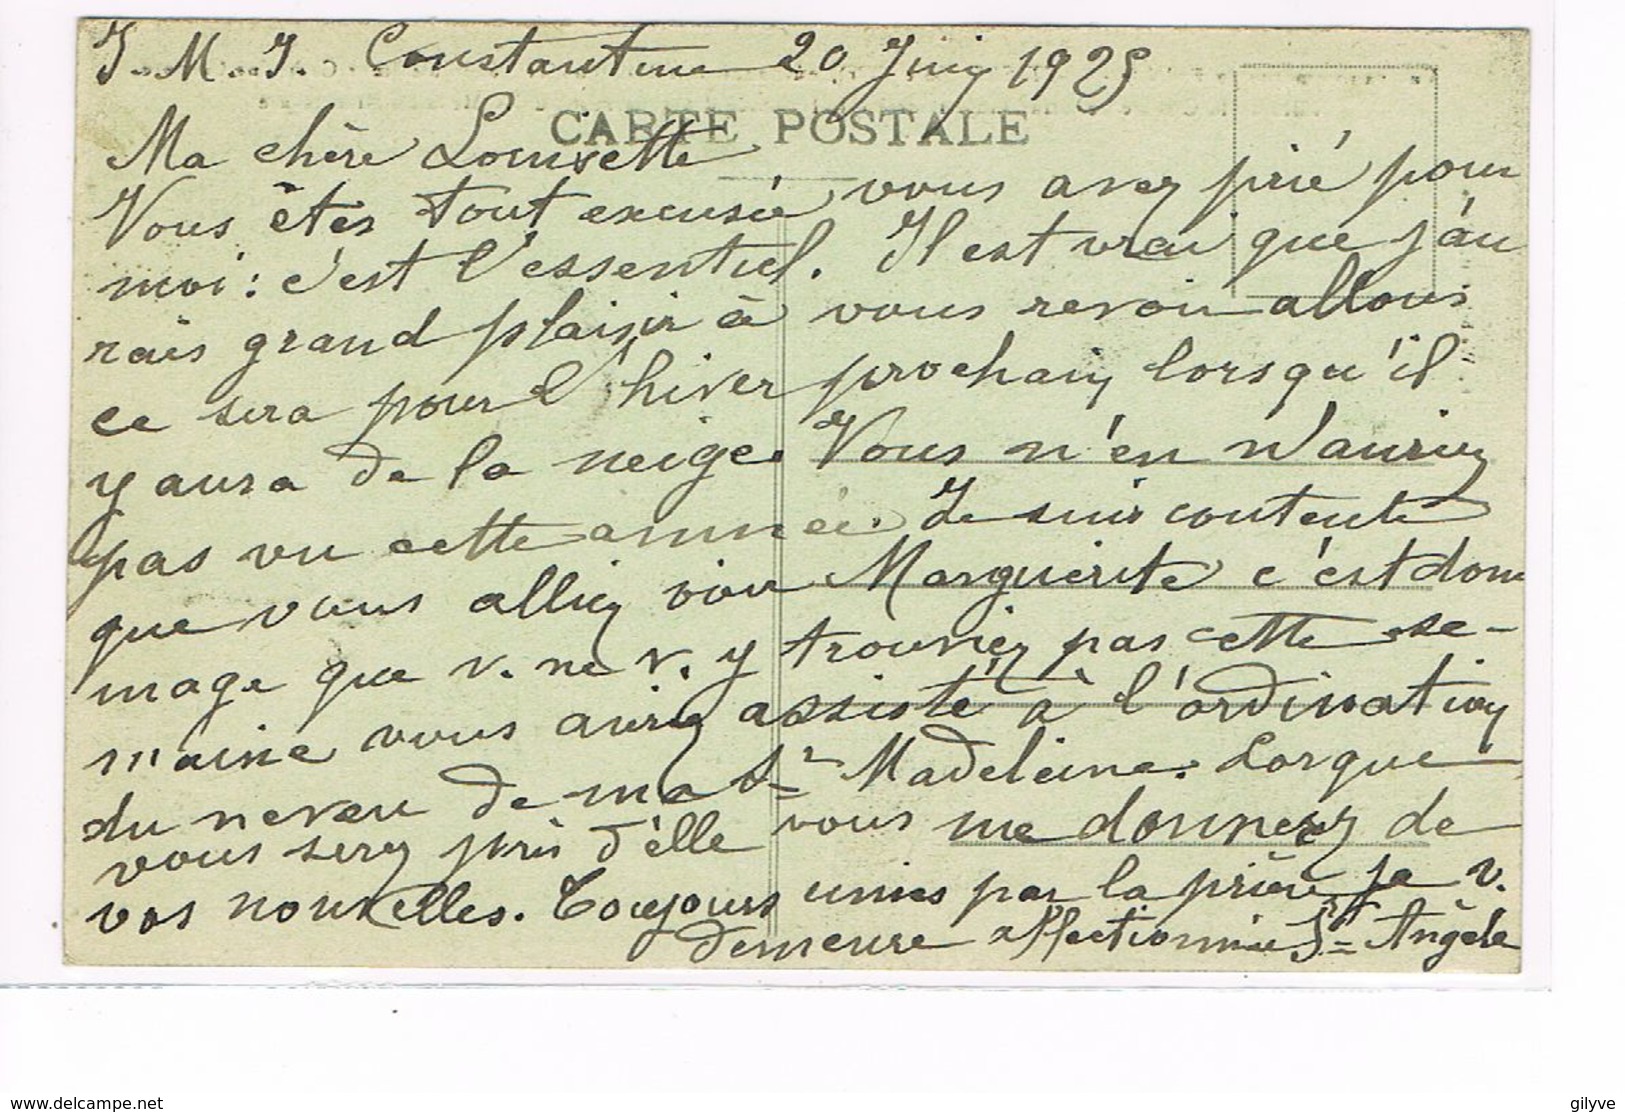 J. M. J. Constantine 20 Juin 1925
CARTE POSTALE
Ma chère Louisette
Vous êtes tout excusée vous avez prié pour
moi : c'est l'essentiel. Il est vrai que j'au
rais grand plaisir à vous revoir allons
ce sera pour l'hiver prochain lorsqu'il
y aura de la neige. Vous n'en n'auriez
pas vu cette année. Je suis contente
que vous alliez voir Marguerite c'est dom
mage que v. ne v. y trouviez pas cette se-
maine vous auriez assisté à l'ordination
du neveu de ma Sr Madeleine. Lorque
vous serez près d'elle vous me donnerez de
vos nouvelles. Toujours unies par la prière je v.
demeure affectionnée Sr Angèle
www.delcampe.net
gilyve